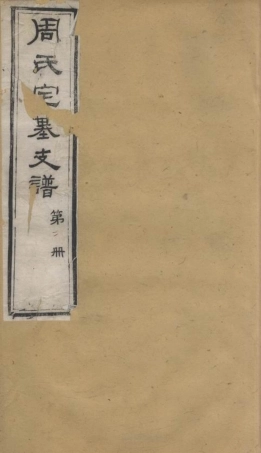 周氏宅基支譜
第 冊